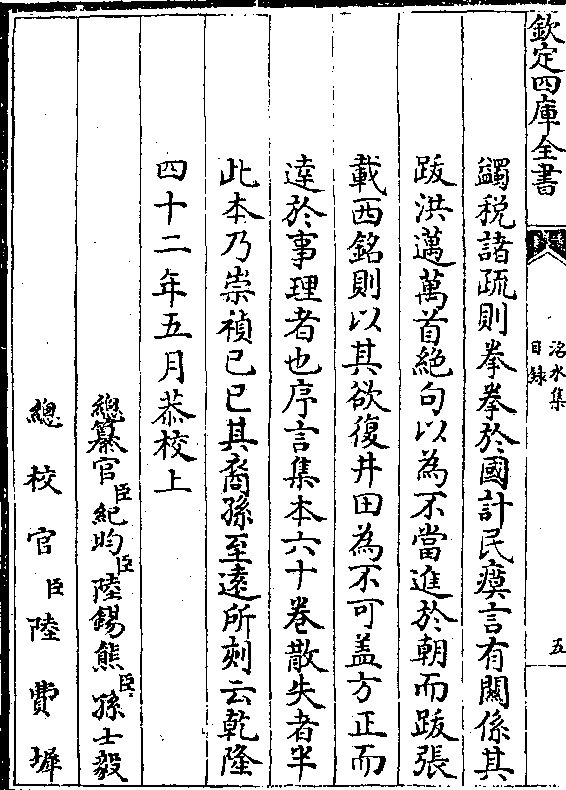 欽定四庫全書
洺水集
目錄
五
蠲稅諸疏則拳拳於國計民瘼言有闗係其
䟦洪邁萬首絶句以為不當進於朝而䟦張
載西銘則以其欲復井田為不可盖方正而
達於事理者也序言集本六十卷散失者半
此本乃崇禎已巳其裔孫至遠所刻云乾隆
四十二年五月恭校上
總纂官臣紀昀臣陸錫熊臣孫士毅
總校官臣陸費墀